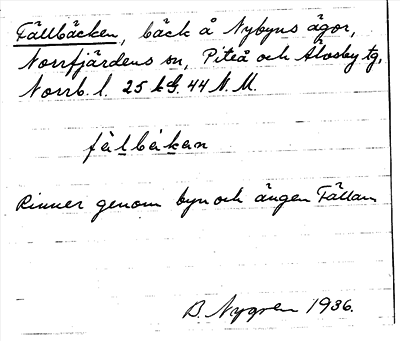 Fällbäcken, bäck å Nybyns ägor,
Norrfjärdens sn, Piteå och Älvsby tg,
Norrb. l. 25 44 N. M.
fälbäkan
Rinner genom byn och ängen Fällan
B. Nygren 1936.